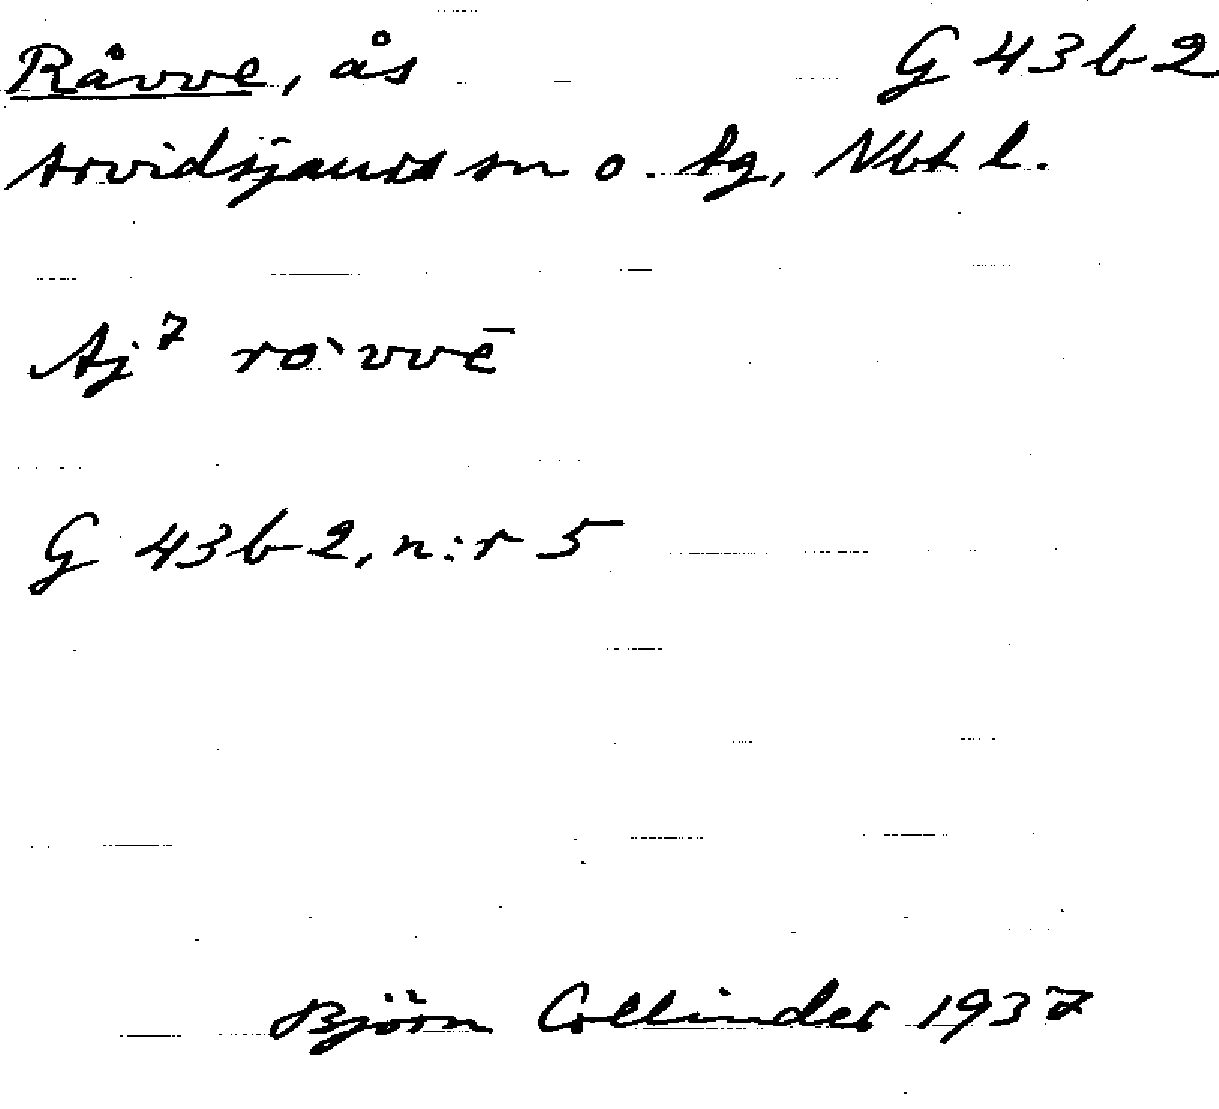 Råvve, ås G 43 b 2
Arvidsjaurs sn o. tg, Nbt l.
Aj⁷ rò̀vvē
G 43 b 2, n:r 5
Björn Collinder 1937